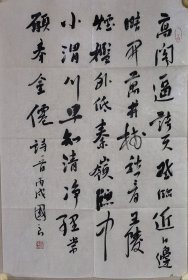 高閣逼諸天登臨近日邊
晴開萬井樹愁看五陵
煙檻外低秦嶺窗中
小渭川早知清淨理常
願奉金僊 詩 丙戌國